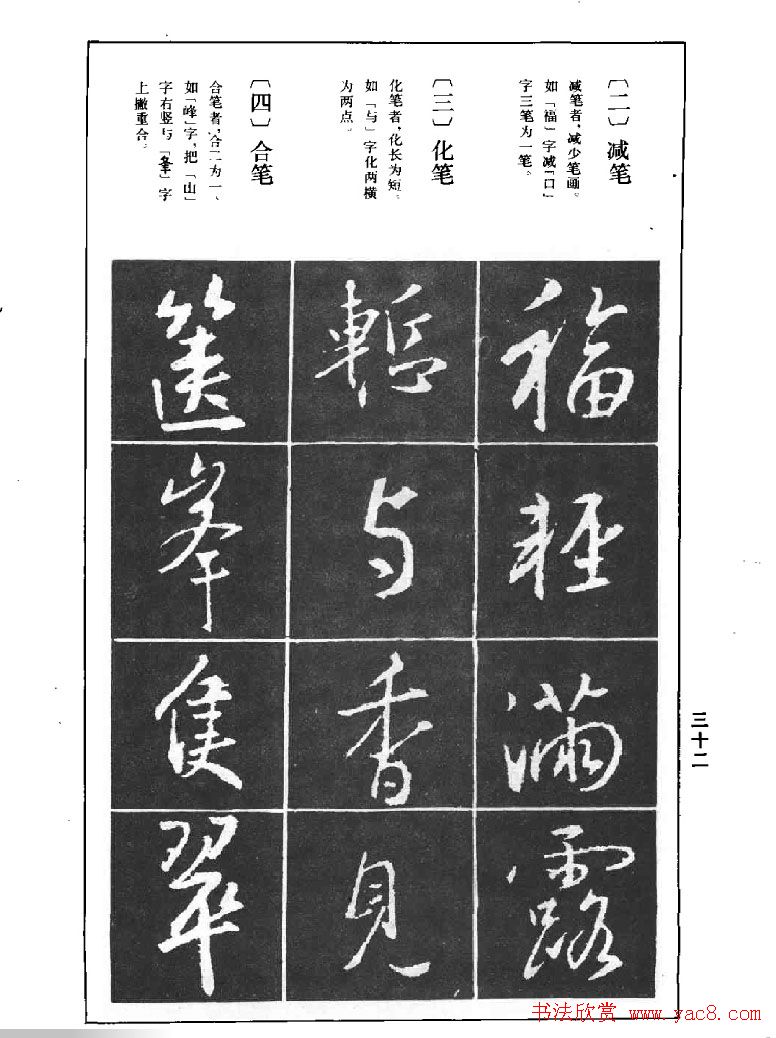 〔二〕减笔
减笔者，减少笔画。
如「福」字减「口」
字三笔为一笔。
〔三〕化笔
化笔者，化长为短。
如「与」字化两横
为两点。
〔四〕合笔
合笔者，合二为一、
如「峰」字，把「山」
字右竖与「夆」字
上撇重合。
福
轻
满
露
暂
与
香
见
箧
峯
隻
翠
三十二
书法欣赏 www.yac8.com